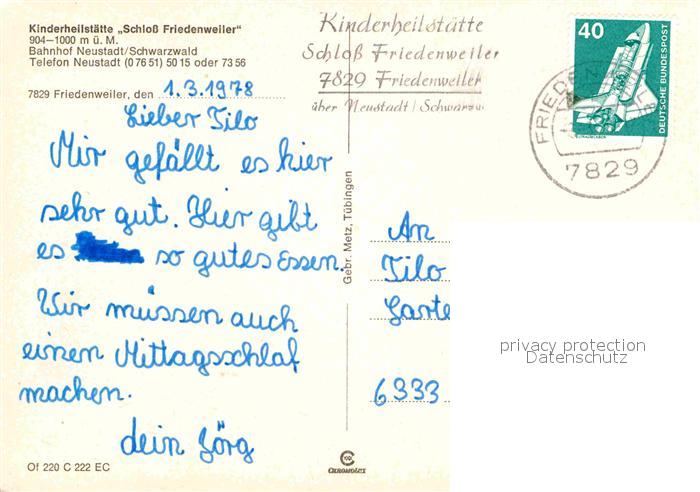 Kinderheilstätte „Schloß Friedenweiler“
904—1000 m ü. M.
Bahnhof Neustadt/Schwarzwald
Telefon Neustadt (0 76 51) 50 15 oder 73 56
7829 Friedenweiler, den 1.3.1978
Lieber Tilo
Mir gefällt es hier
sehr gut. Hier gibt
es so gutes Essen.
Wir müssen auch
einen Mittagsschlaf
machen.
dein Jörg
Of 220 C 222 EC
Gebr. Metz, Tübingen
CHROMOLUX
Kinderheilstätte
Schloß Friedenweiler
7829 Friedenweiler
über Neustadt / Schwarzw.
40
DEUTSCHE BUNDESPOST
7829
An
Tilo
Garte
6333
privacy protection
Datenschutz